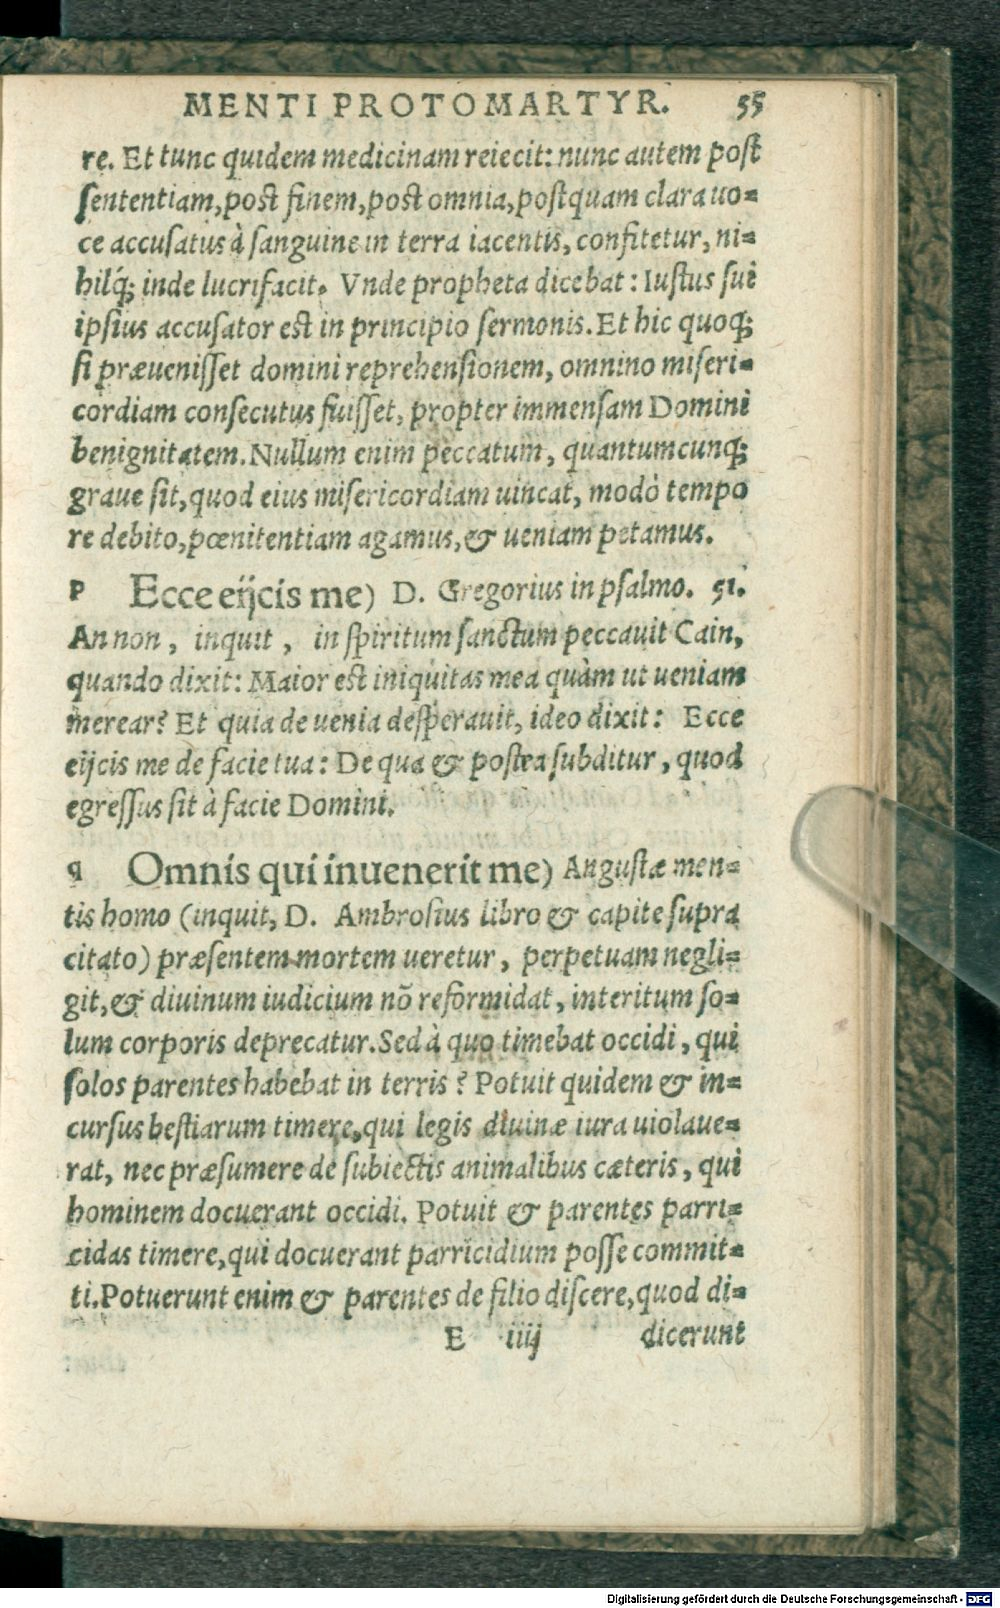 MENTI PROTOMARTYR. 55
re. Et tunc quidem medicinam reiecit: nunc autem post
sententiam, post finem, post omnia, postquam clara uo=
ce accusatus à sanguine in terra iacentis, confitetur, ni=
hilq́; inde lucrifacit. Vnde propheta dicebat: Iustus sui
ipsius accusator est in principio sermonis. Et hic quoq;
si præuenisset domini reprehensionem, omnino miseri=
cordiam consecutus fuisset, propter immensam Domini
benignitatem. Nullum enim peccatum, quantumcunq;
graue sit, quod eius misericordiam uincat, modò tempo
re debito, pœnitentiam agamus, & ueniam petamus.
P Ecce eijcis me) D. Gregorius in psalmo. 51.
An non, inquit, in spiritum sanctum peccauit Cain,
quando dixit: Maior est iniquitas mea quàm ut ueniam
merear? Et quia de uenia desperauit, ideo dixit: Ecce
eijcis me de facie tua: De qua & postea subditur, quod
egressus sit à facie Domini.
q Omnis qui inuenerit me) Angustæ men=
tis homo (inquit, D. Ambrosius libro & capite supra
citato) præsentem mortem ueretur, perpetuam negli=
git, & diuinum iudicium nō reformidat, interitum so=
lum corporis deprecatur. Sed à quo timebat occidi, qui
solos parentes habebat in terris? Potuit quidem & in=
cursus bestiarum timere, qui legis diuinæ iura uiolaue=
rat, nec præsumere de subiectis animalibus cæteris, qui
hominem docuerant occidi. Potuit & parentes parri=
cidas timere, qui docuerant parricidium posse commit=
ti. Potuerunt enim & parentes de filio discere, quod di=
E iiij dicerunt
Digitalisierung gefördert durch die Deutsche Forschungsgemeinschaft - DFG